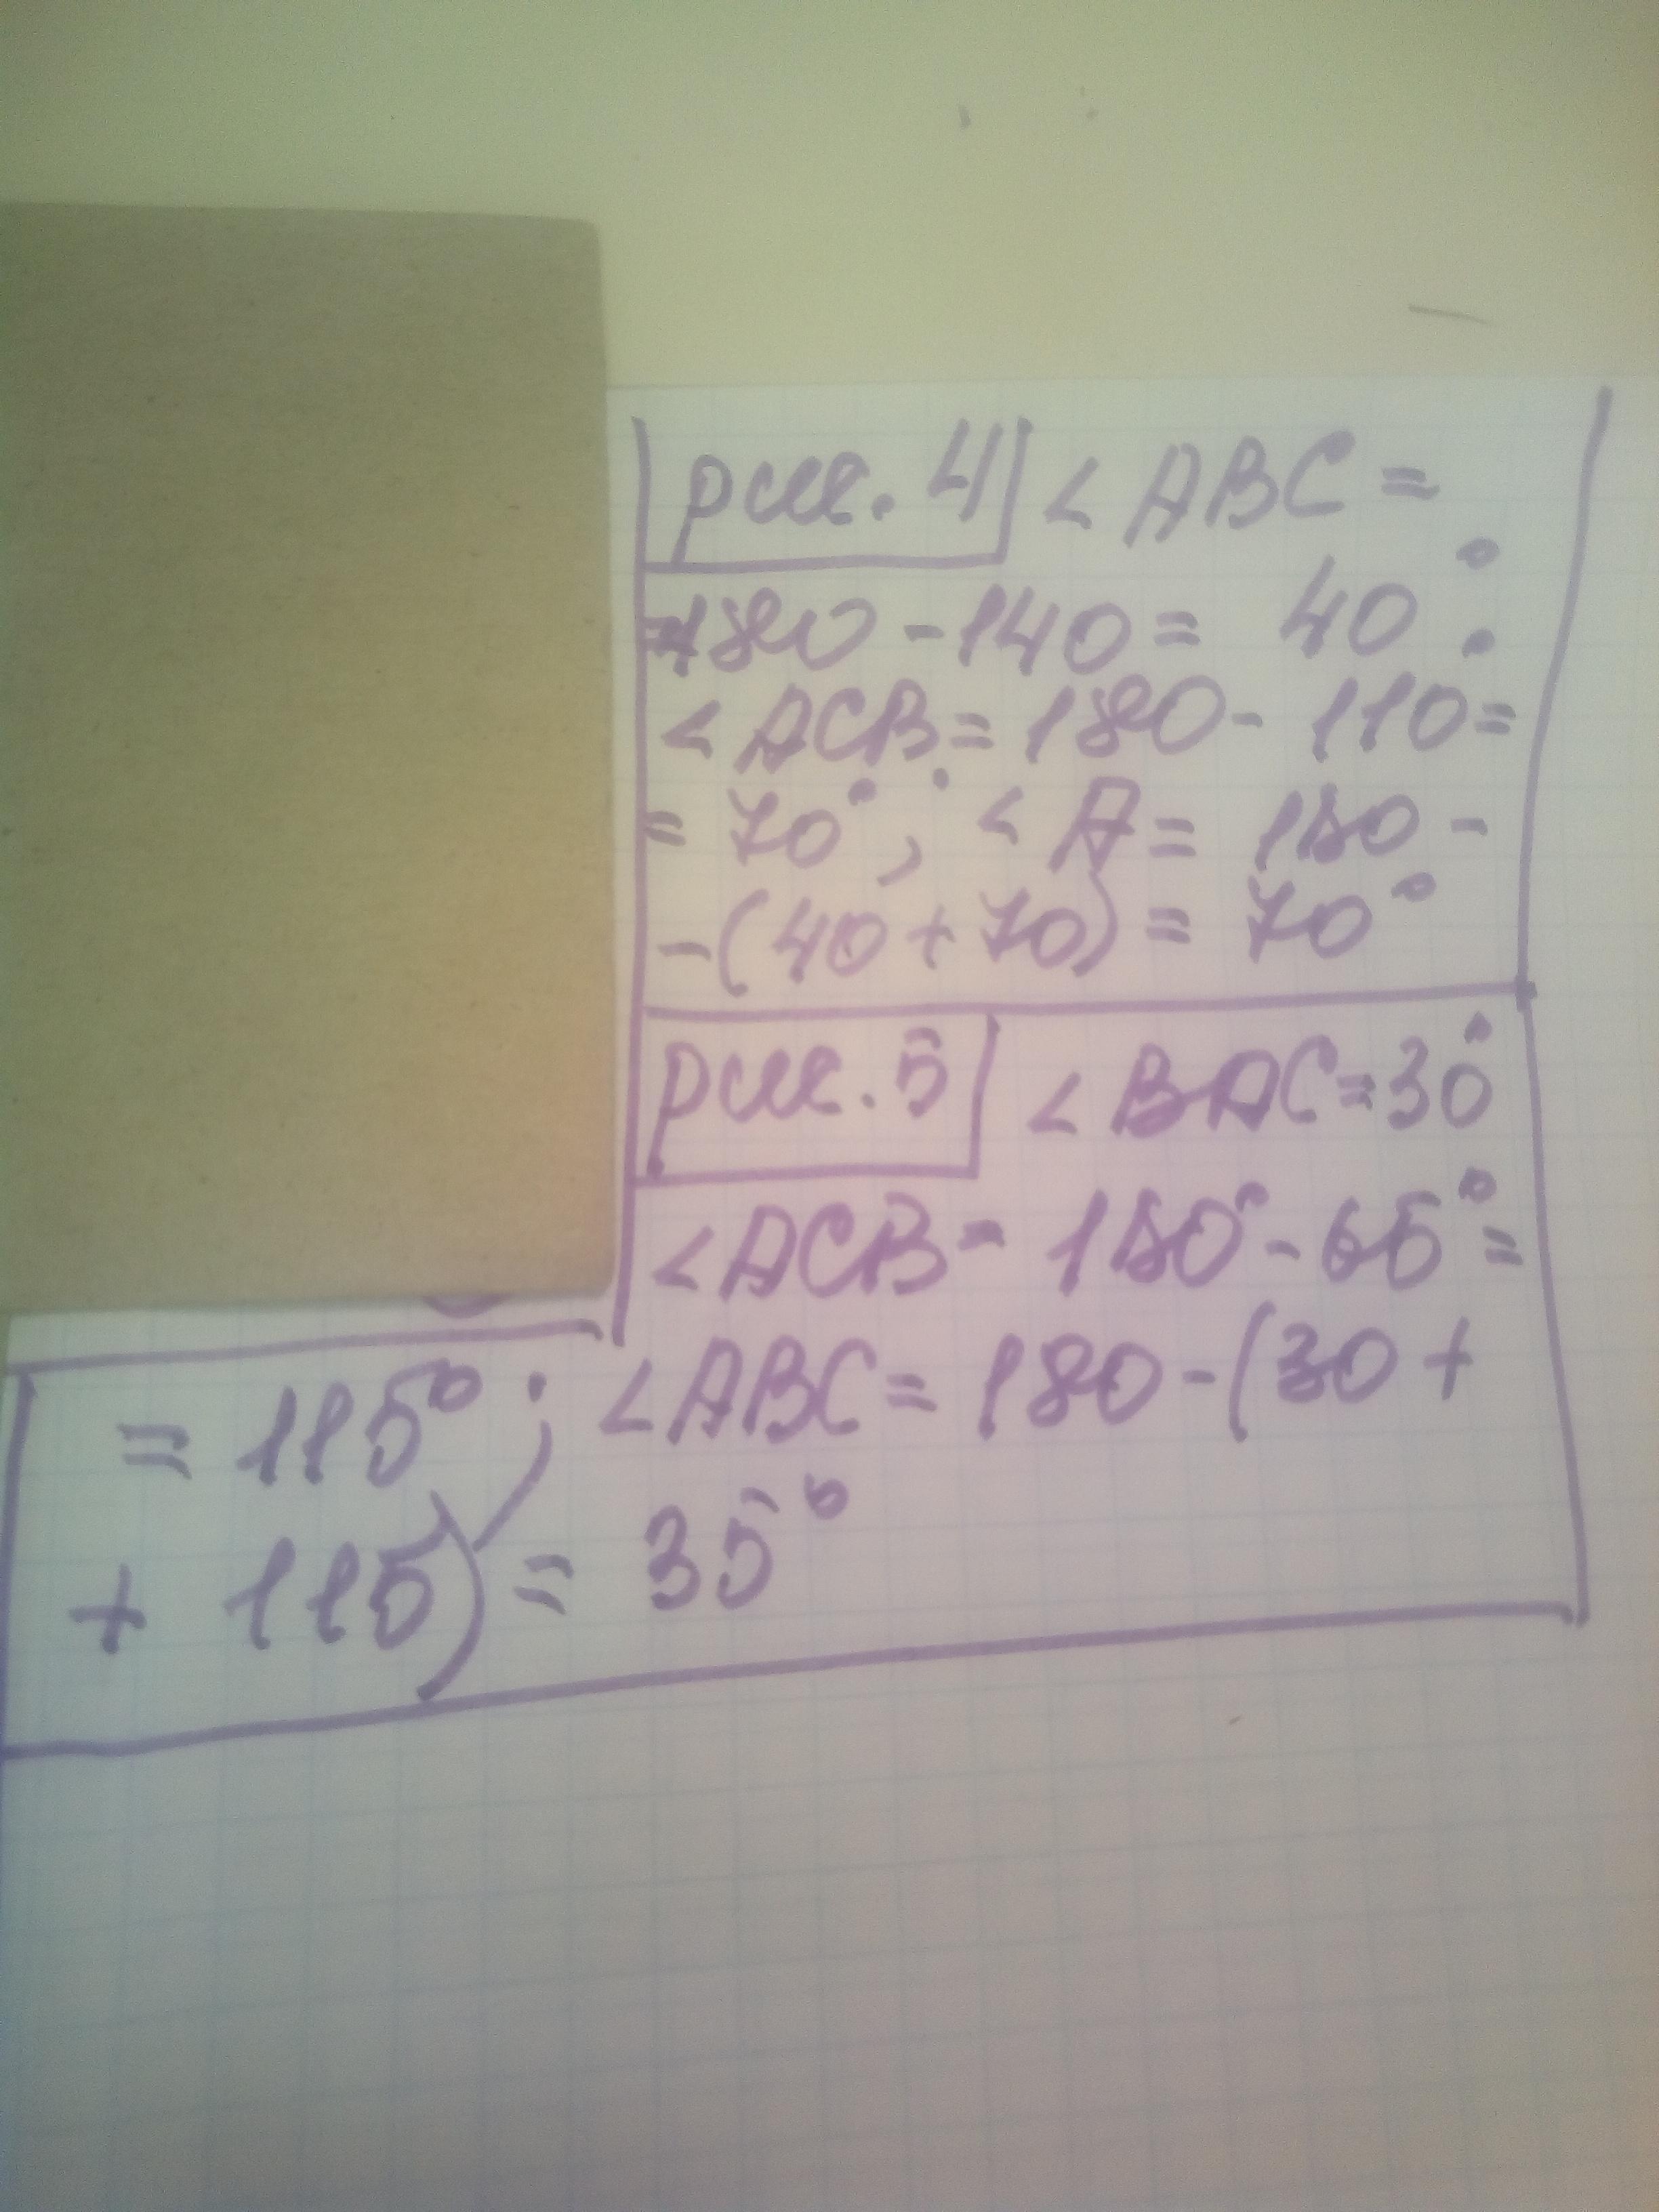 рис. 4 < ABC =
=180 - 140 = 40°;
< ACB = 180 - 110 =
= 70°; < A = 180 -
- (40 + 70) = 70°
рис. 5 < BAC = 30°
< ACB = 180° - 65° =
= 115°; < ABC = 180 - (30 +
+ 115) = 35°